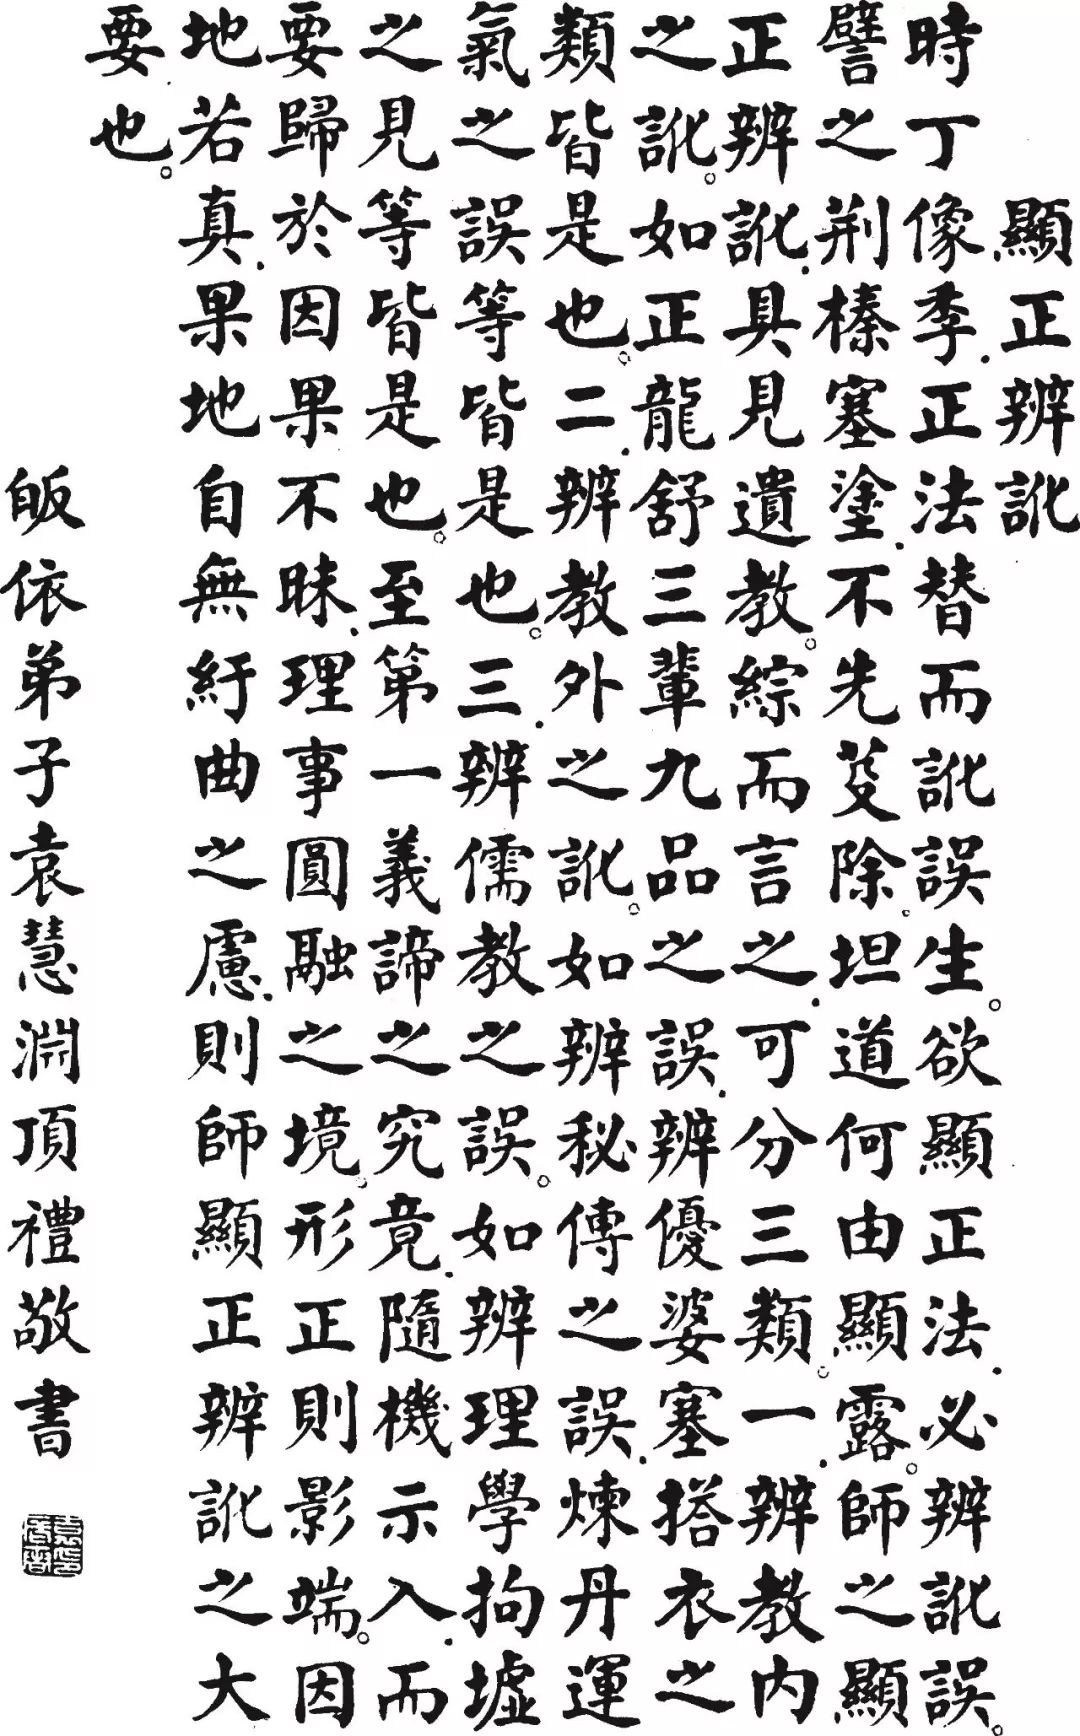 顯正辨訛
時丁像季.正法替而訛誤生。欲顯正法.必辨訛誤。
譬之荆榛塞塗.不先芟除.坦道何由顯露。師之顯
正辨訛.具見遺教。綜而言之.可分三類。一.辨教內
之訛。如正龍舒三輩九品之誤.辨優婆塞搭衣之
類皆是也。二.辨教外之訛。如辨秘傳之誤.煉丹運
氣之誤等皆是也。三.辨儒教之誤。如辨理學拘墟
之見等皆是也。至第一義諦之究竟.隨機示入.而
要歸於因果不昧.理事圓融之境。形正則影端。因
地若真.果地自無紆曲之慮.則師顯正辨訛之大
要也。
皈依弟子袁慧淵頂禮敬書